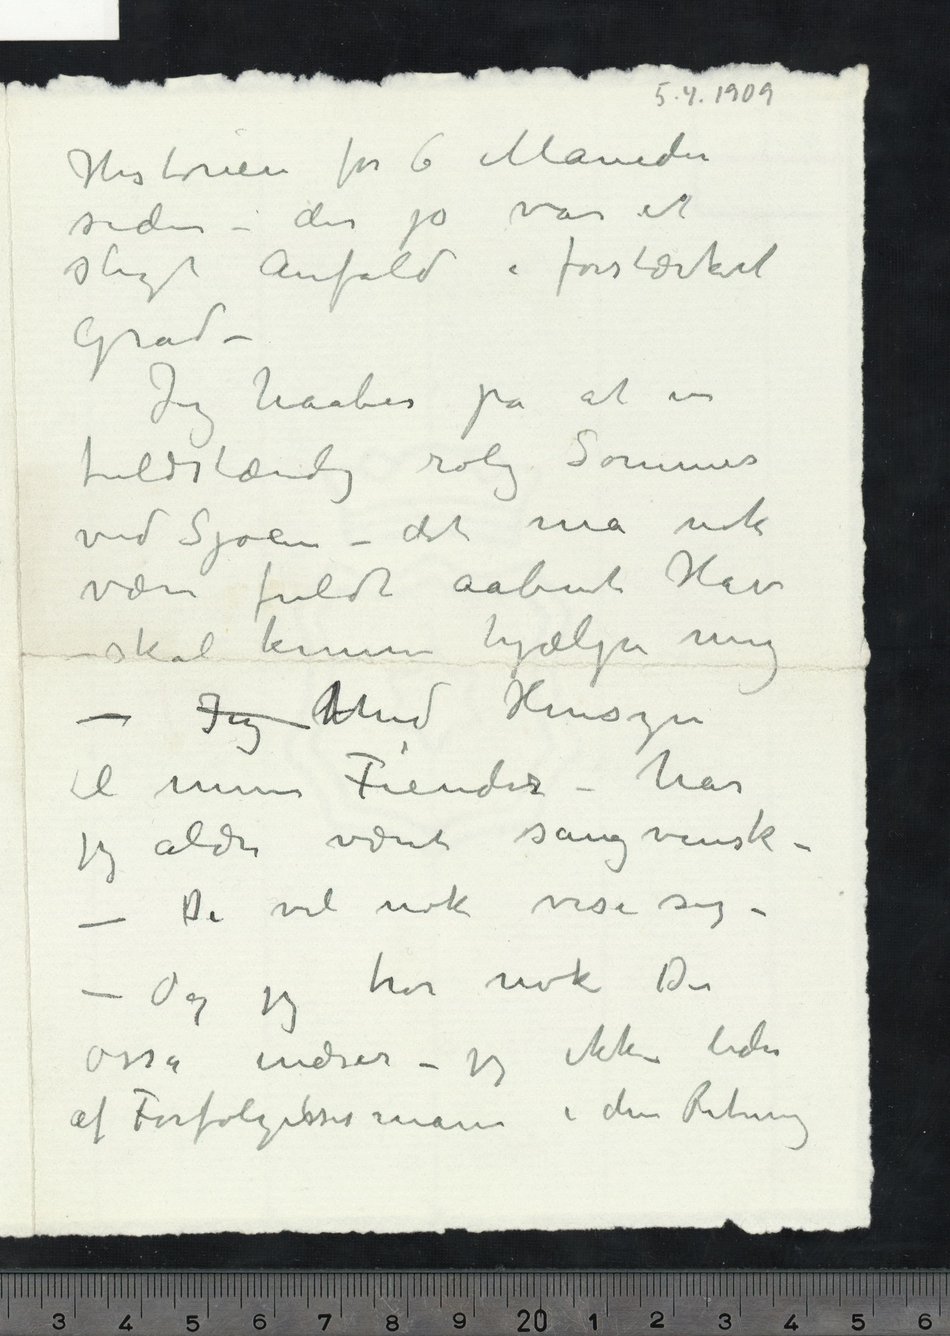 5.4.1909
Historien for 6 Maneder
siden – der jo var et
sligt Anfald i forstærket
Grad –
Jeg haaber pa at en
fuldstændig rolig Sommer
ved Sjøen – det ma nok
være fuldt aabent Hav
– skal kunne hjælpe mig
– Jeg Med Hensyn
til mine Fiender – har
jeg aldri været sangvinsk –
– De vil nok vise sig –
– Og jeg tror nok De
ossa indser – jeg ikke lider
af Forfølgelsesmani i den Retning
3 4 5 6 7 8 9 20 1 2 3 4 5 6